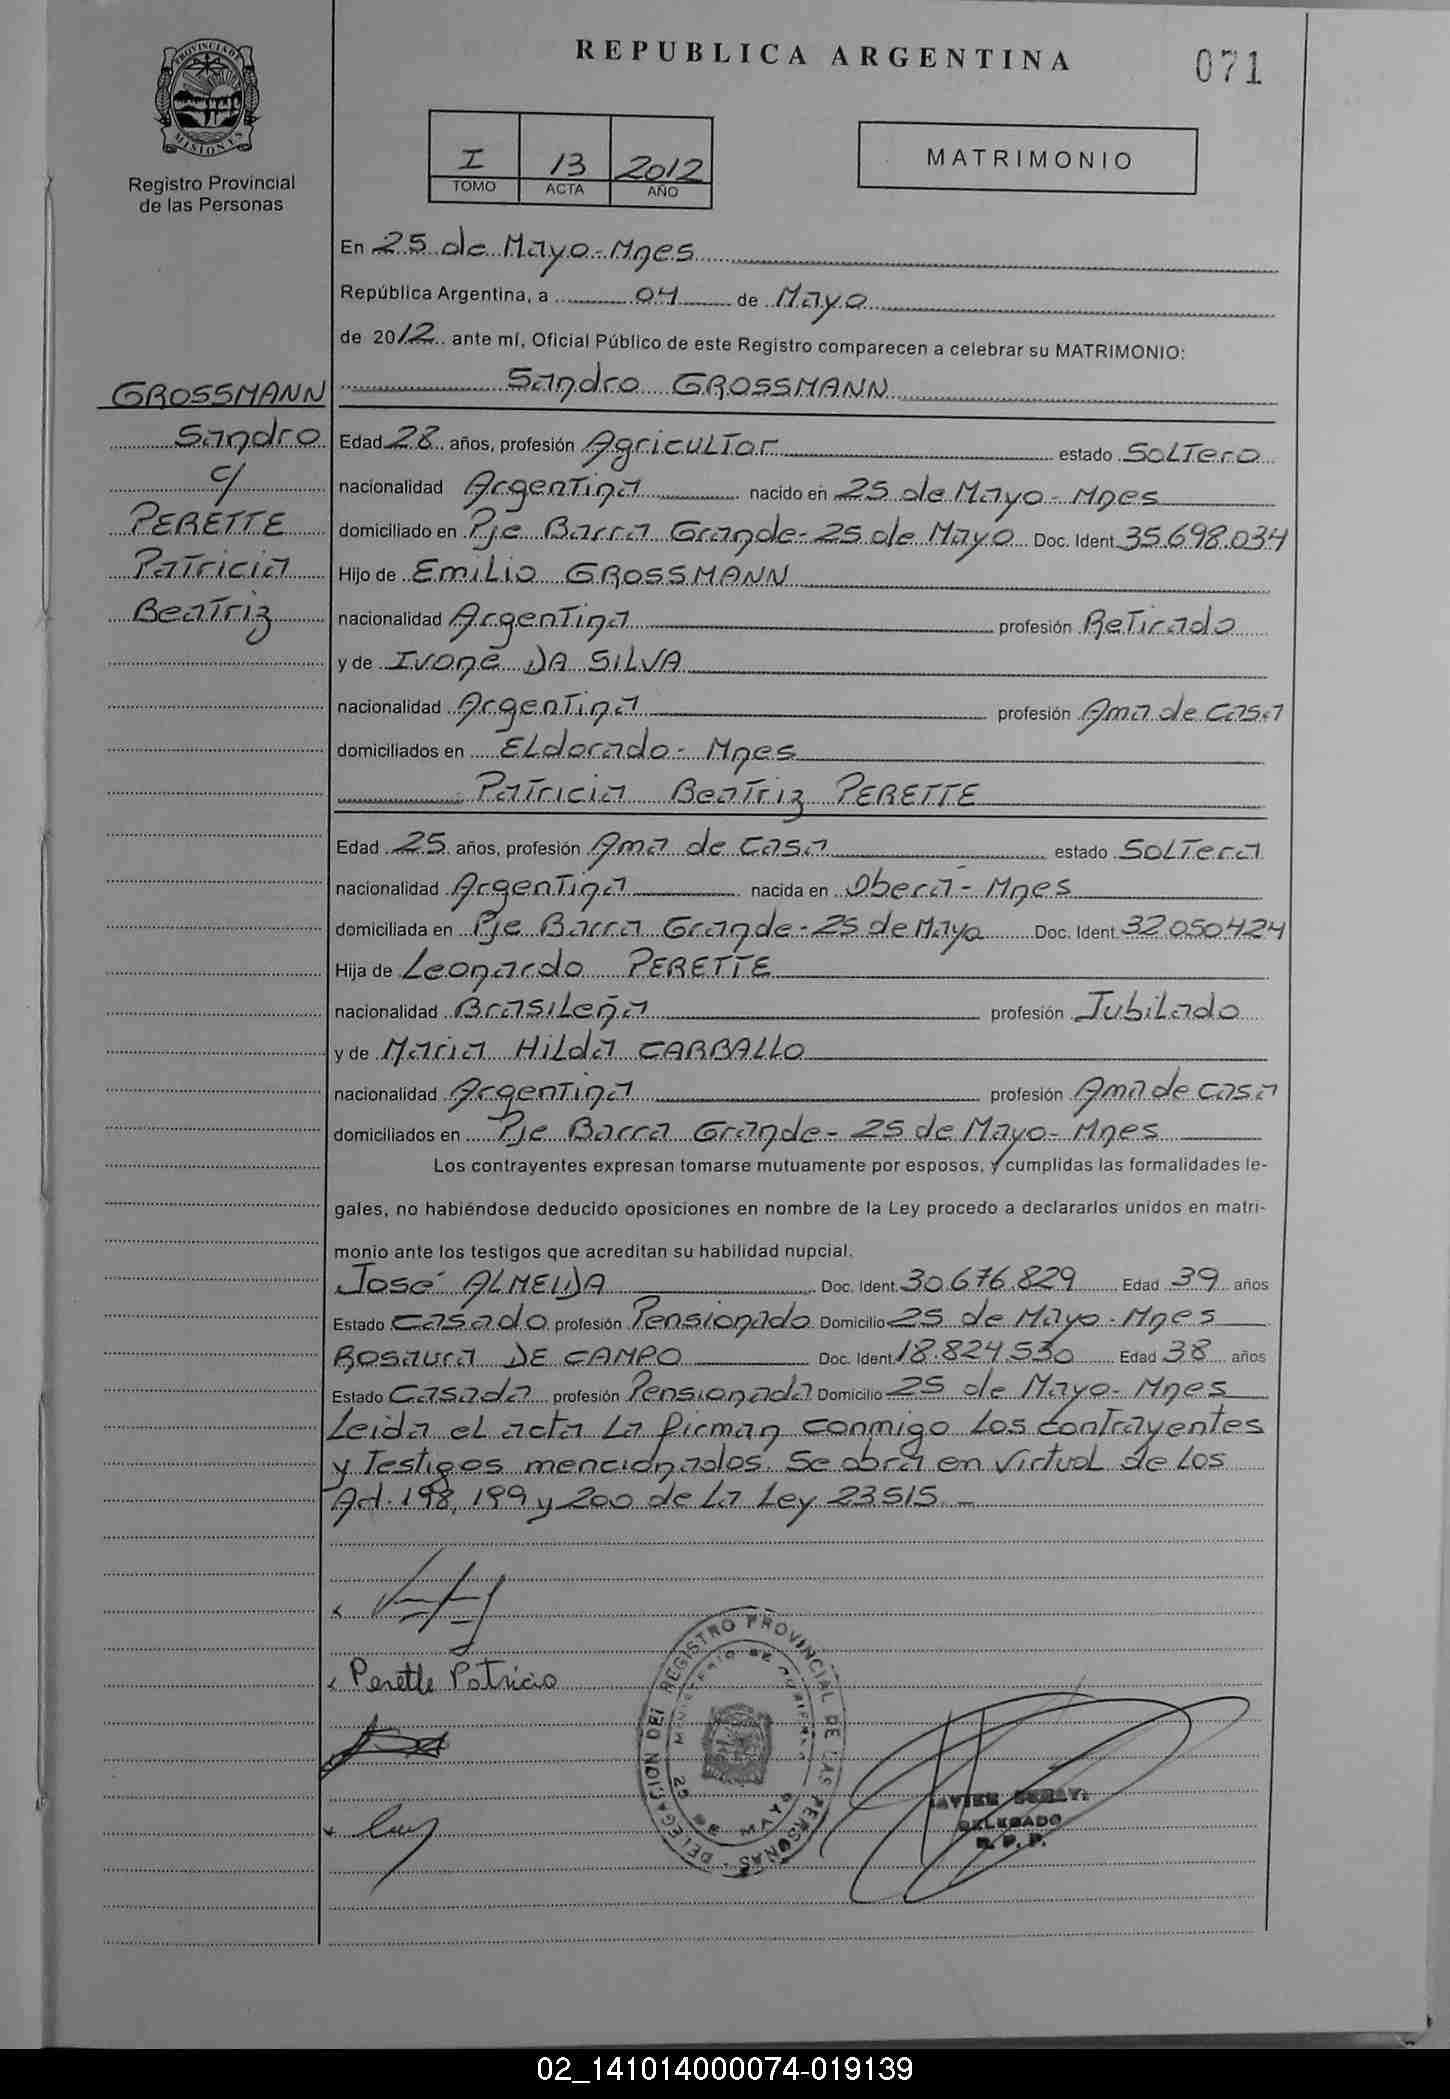 REPUBLICA ARGENTINA
071
PROVINCIA DE MISIONES
Registro Provincial
de las Personas
I 13 2012
TOMO ACTA AÑO
MATRIMONIO
En 25 de Mayo - Mnes
República Argentina, a 04 de Mayo
de 2012 ante mí, Oficial Público de este Registro comparecen a celebrar su MATRIMONIO:
GROSSMANN
Sandro
c/
PERETTE
Patricia
Beatriz
Sandro GROSSMANN
Edad 28 años, profesión Agricultor estado Soltero
nacionalidad Argentina nacido en 25 de Mayo - Mnes
domiciliado en Pje Barra Grande - 25 de Mayo Doc. Ident. 35.698.034
Hijo de Emilio GROSSMANN
nacionalidad Argentina profesión Retirado
y de Ivone DA SILVA
nacionalidad Argentina profesión Ama de casa
domiciliados en Eldorado - Mnes
Patricia Beatriz PERETTE
Edad 25 años, profesión Ama de casa estado Soltera
nacionalidad Argentina nacida en Oberá - Mnes
domiciliada en Pje Barra Grande - 25 de Mayo Doc. Ident. 32.050.424
Hija de Leonardo PERETTE
nacionalidad Brasileña profesión Jubilado
y de Maria Hilda CARBALLO
nacionalidad Argentina profesión Ama de casa
domiciliados en Pje Barra Grande - 25 de Mayo - Mnes
Los contrayentes expresan tomarse mutuamente por esposos, y cumplidas las formalidades le-
gales, no habiéndose deducido oposiciones en nombre de la Ley procedo a declararlos unidos en matri-
monio ante los testigos que acreditan su habilidad nupcial.
José ALMEIDA Doc. Ident. 30.676.829 Edad 39 años
Estado casado profesión Pensionado Domicilio 25 de Mayo - Mnes
Rosaura DE CAMPO Doc. Ident. 18.824.530 Edad 38 años
Estado Casada profesión Pensionada Domicilio 25 de Mayo - Mnes
Leida el acta la firman conmigo los contrayentes
y testigos mencionados. Se obra en virtud de los
Art. 198, 199 y 200 de la Ley 23515. -
x
x Perette Patricia
DELEGACION DEL REGISTRO PROVINCIAL DE LAS PERSONAS
MINISTERIO DE GOBIERNO
25 DE MAYO
x
JAVIER
DELEGADO
R. P. P.
02_141014000074-019139